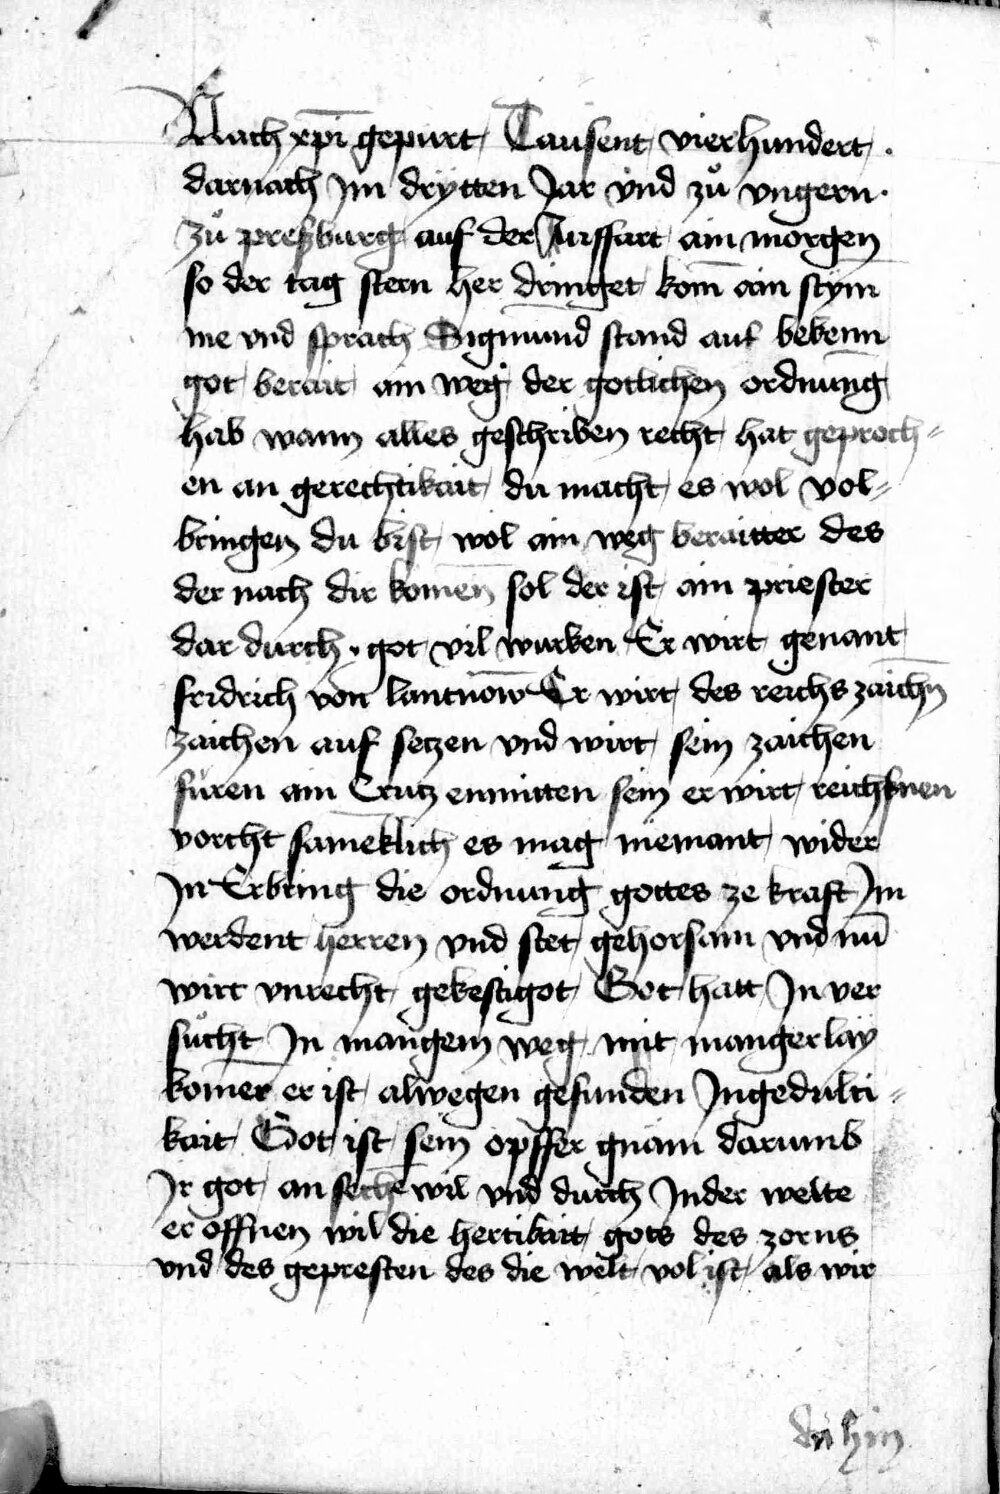 Nach xp̄i gepurt Tausent vierhundert .
darnach Jm drytten Jar vnd zů vngern.
zů preßburg auf der Auffart ain morgen
so der tag stern her dringet kom̄ ain stym
me vnd sprach Sigmund stand auf bekenn
got berait ain weg der gotlichen ordnung
hab wann alles geschriben recht hat geproch=
en an gerechtikait du macht es wol vol=
bringen du bist wol ain weg beraitter des
der nach dir komen̄ sol der ist ain priester
dar durch . got vil wurken Er wirt genant
fridrich von lantnow Er wirt des reichs zaichn̄
zaichen auf setzen vnd wirt sein zaichen
fůren ain Crutz enmitten sein er wirt reichßnen
vorcht sameklich es mag niemant wider
Jn Erbring die ordnung gottes ze kraft Jm
werdent herren vnd stet gehorsam vnd nū
wirt vnrecht gekestigot Got hatt Jn ver
sůcht Jn mangem weg mit mangerlay
komer er ist alwegen gefunden Jngedulti=
kait Got ist sein opffer gnäm darumb
Jr got an sechē wil vnd durch Jn der welte
er offnen wil die hertikait gots des zorns
vnd des gepresten des die welt vol ist als wir
da hin